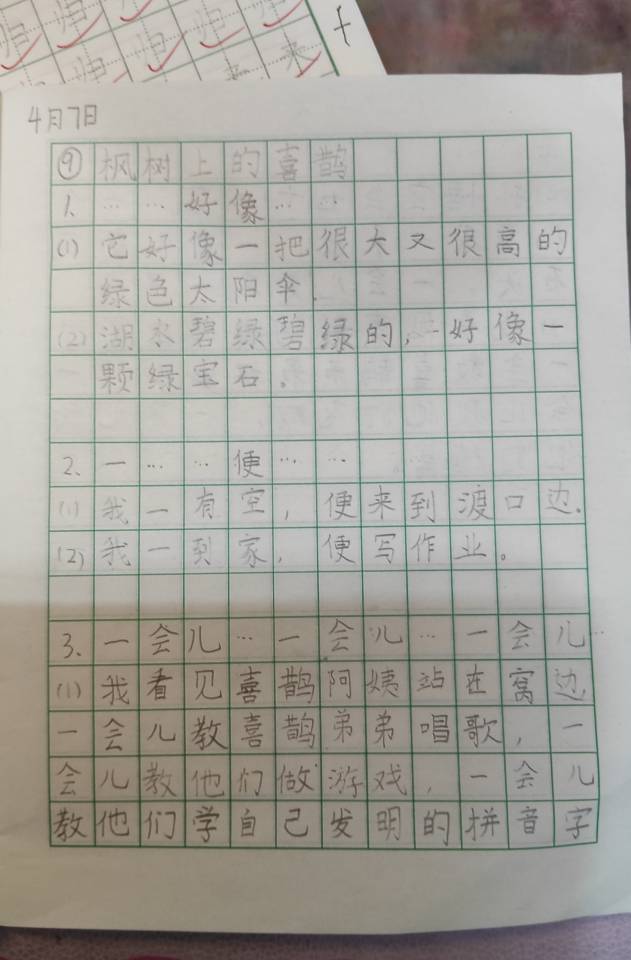 4月7日
⑨枫树上的喜鹊
1.……好像……
(1)它好像一把很大又很高的
绿色太阳伞.
(2)湖水碧绿碧绿的,好像一
颗绿宝石。
2、一……便……
(1)我一有空,便来到渡口边.
(2)我一到家,便写作业。
3、一会儿…一会儿…一会儿…
(1)我看见喜鹊阿姨站在窝边,
一会儿教喜鹊弟弟唱歌,一
会儿教他们做游戏,一会儿
教他们学自己发明的拼音字